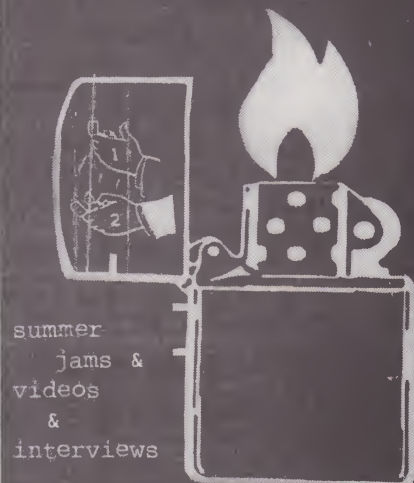 1
2
summer
jams &
videos
&
interviews